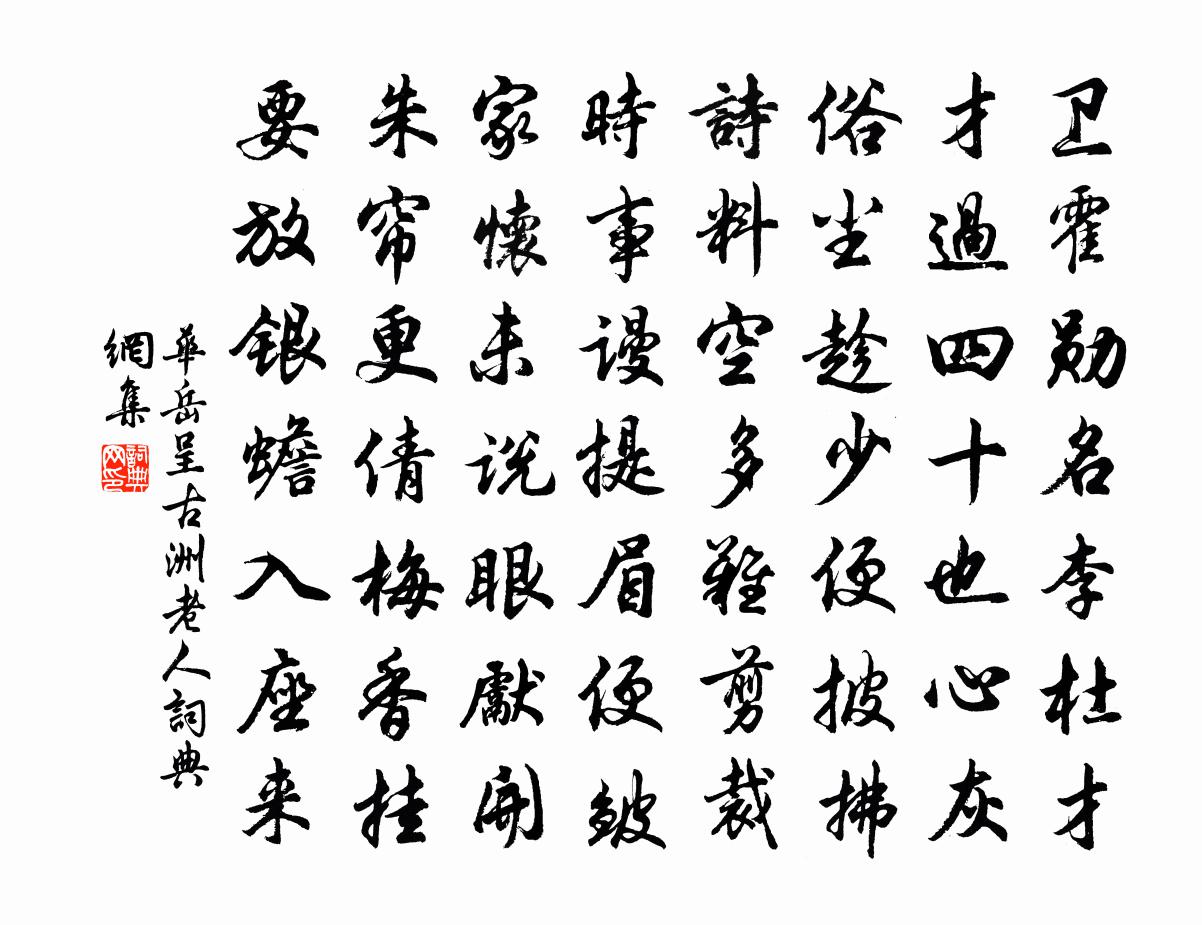 卫霍勋名李杜才
才過四十也心灰
俗尘趁少便披拂
詩料空多難剪裁
時事谩提眉便皱
家懷未说眼慵開
朱帘更倩梅香挂
要放银蟾入座来
華岳呈古洲老人詞典
網集
詞典
网印